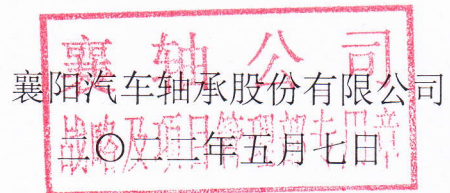 襄轴公司
襄阳汽车轴承股份有限公司
战略及项目管理部专用章
二〇二二年五月七日